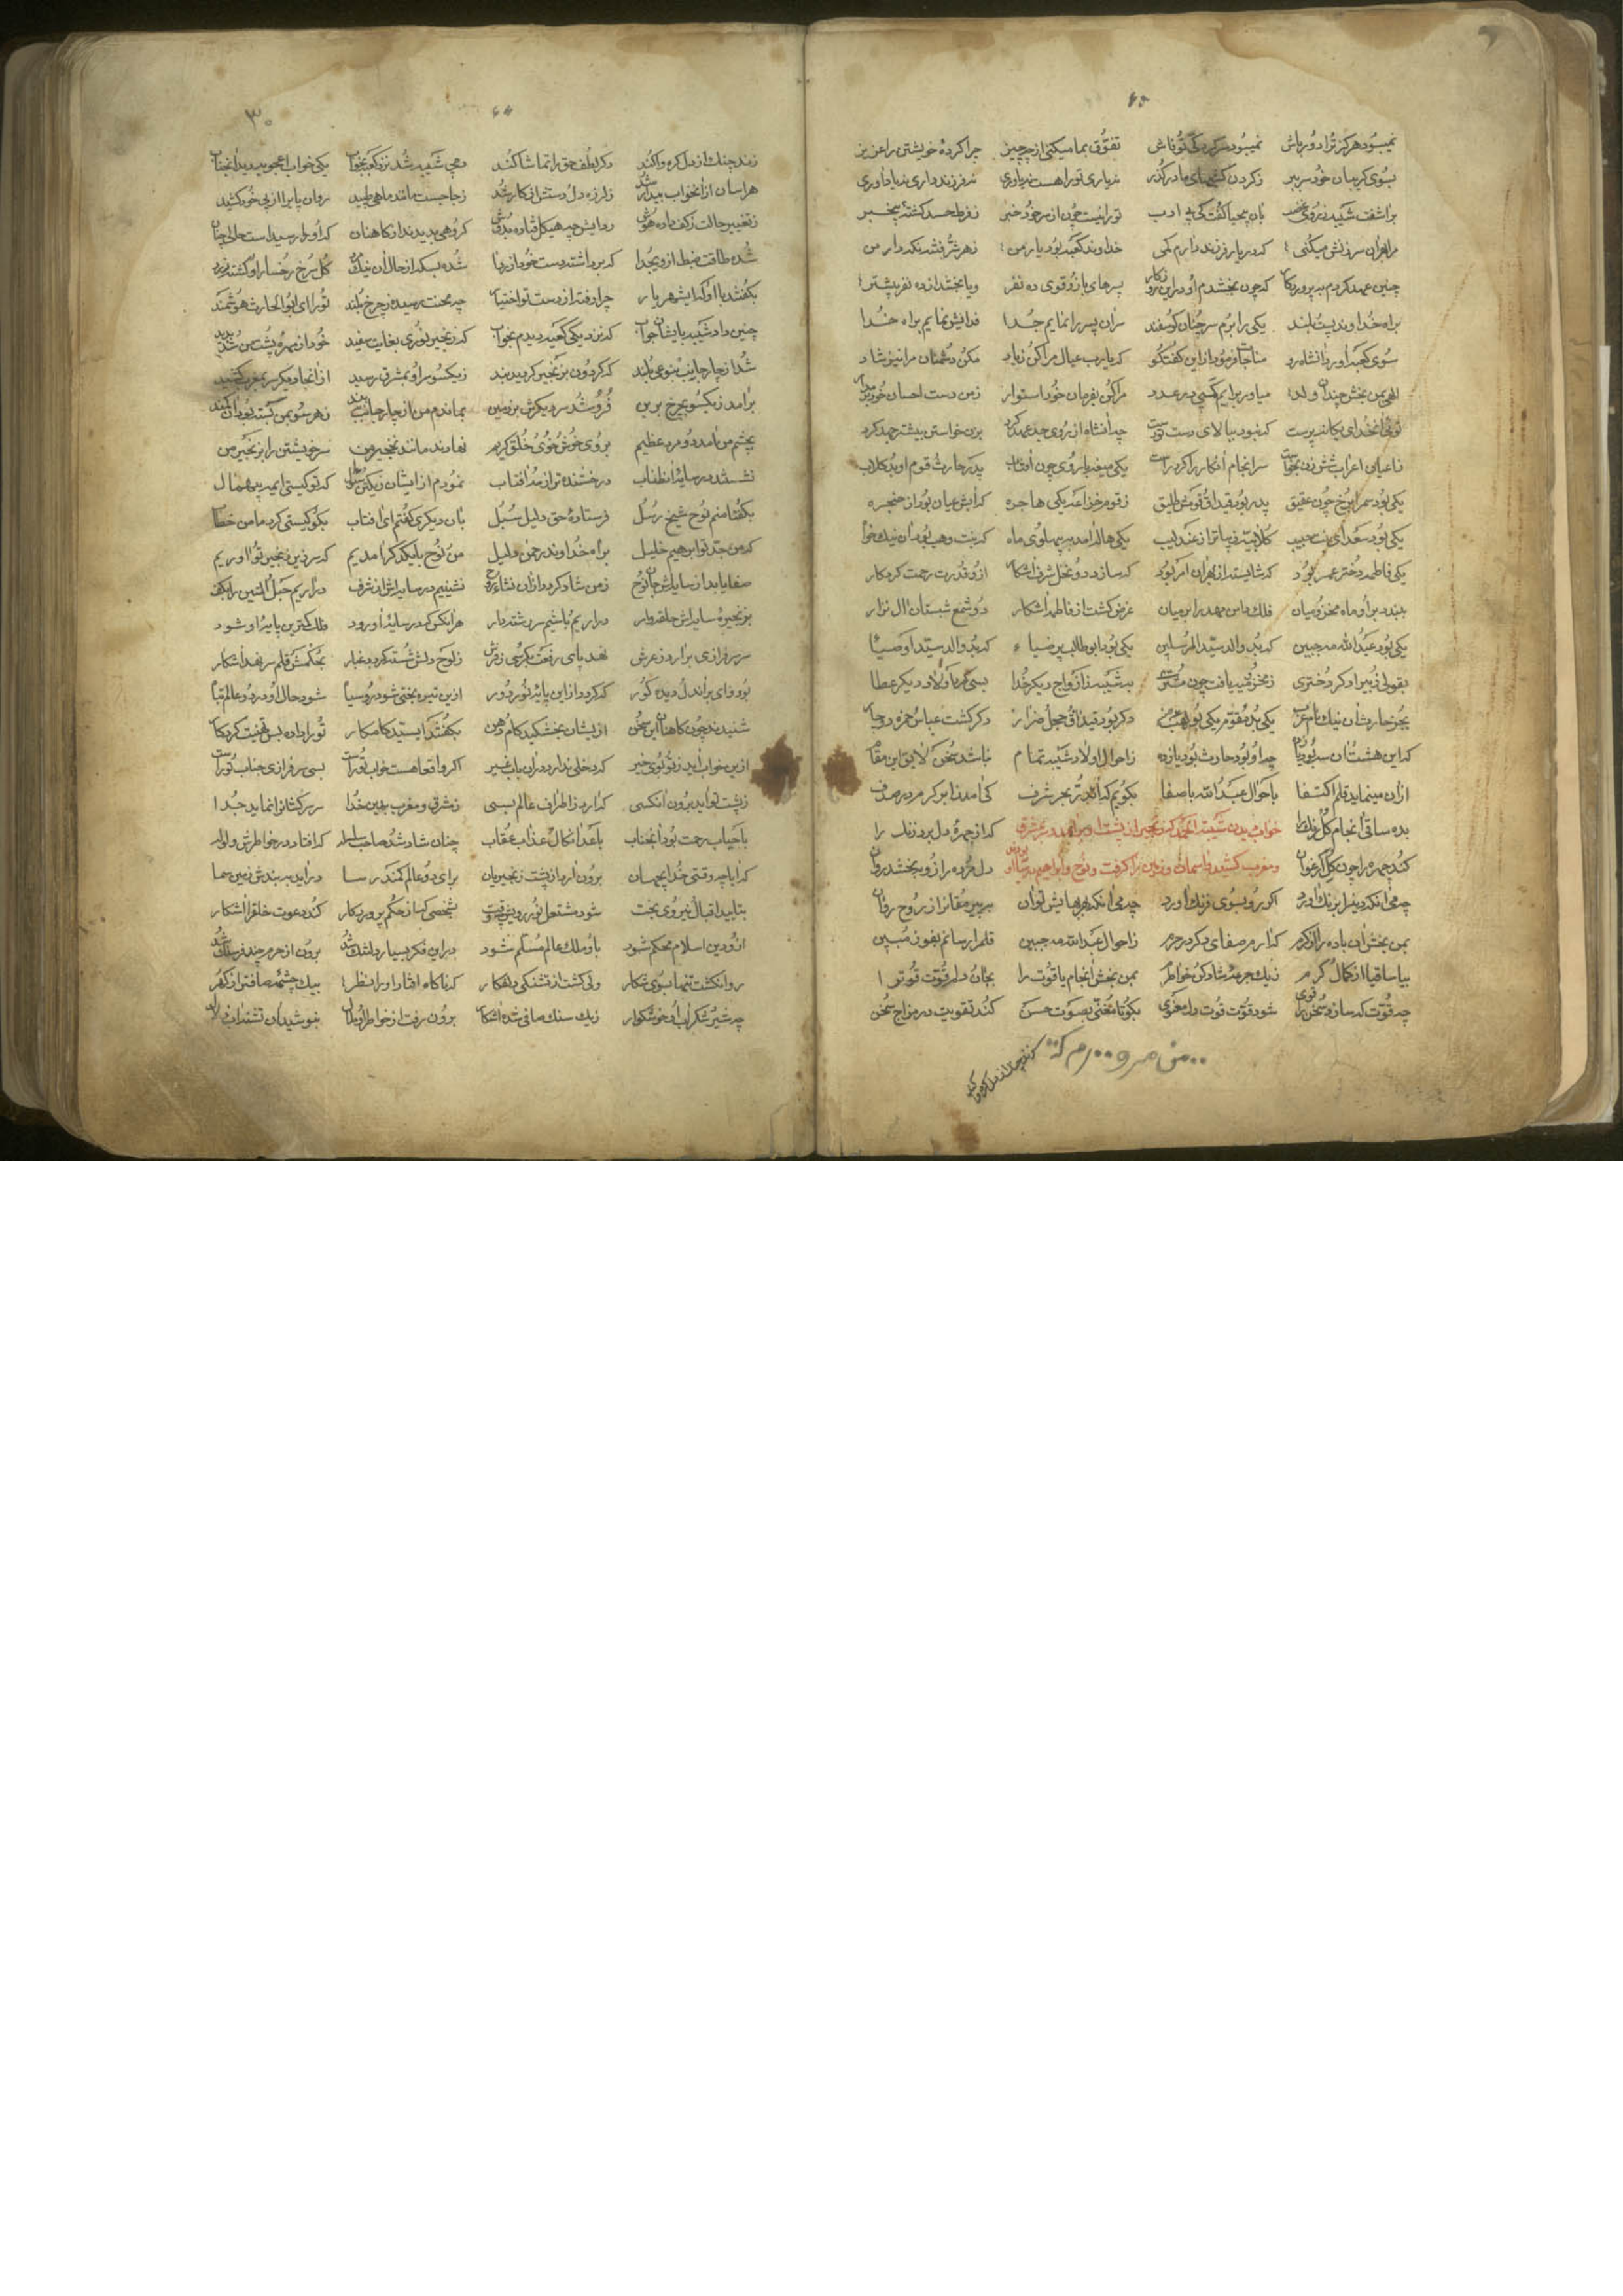 نمیبود هرگز ترا دورباش نمیبود سرکردکی تو فاش تفوق بما میکنی از چه چیز چرا کردهٔ خویشتن را عزیز
بسوی کریمان خود سر ببر ز کردن مادر گذر نه یاری تو را هست نه یاوری نه فرزند داری نه یا داوری
براشفت شیبه بان بیحیا گفت کی بی ادب تو را نیست چون از سر خود خبر ز فرط حسد کشتهٔ بیخبر
مرا هان سرزنش میکنی که در یار فرزند دارم کمی خداوند کعبه بود یار من ز هر شر
چنین عهد کردم به پروردگار که چون بخشدم او در این روزگار پسرهای بازو قوی ده نفر و یا بخشد از ده نفر بیشتر
براه خداوند پست و بلند یکی را برم سر چنان کوسفند از ان پس سر را نمایم جدا فدایش نمایم براه خدا
سوی کعبه آورد آنشاه رو مناجات فرمود از این گفتگو که یارب عیال مرا کن زیاد مکن دشمنان مرا نیز شاد
الهی بمن بخش چندان ولد میاور برایم کسی در عدد مرا کن بفرمان خود استوار ز من دست احسان خود بر مدار
توئی آنخدای یکانه پرست که نبود ببالای دست تو دست چه آنشاه از روی جد عهد کرد بزن خواستن بیشتر جهد کرد
ز اعیان اعراب شش زن بخواست سرانجام افکار را کرد راست یکی صفیه با روی چون آفتاب پدر حارث قوم او بد کلاب
یکی بود سمرا برخ چون عقیق پدر بود قیداق قومش طلیق ز قوم خزاعه یکی هاجره که آبش عیان بود از حنجره
یکی بود سعدای بنت حبیب کلابیه زیباتر از عندلیب یکی هاله آمد به پهلوی ماه که بنت وهب بود آن نیکخواه
یکی فاطمه دختر عمر بود که شایسته از بهر ان امر بود که سازد دو نخل شرف آشکار از و قدرت رحمت کردگار
ببندد براو ماه مخزومیان فلک دامن مهد را بر میان غرض کشت از فاطمه آشکار دو شمع شبستان آل نزار
یکی بود عبدالله مه جبین که بد والد سید المرسلین یکی بود ابوطالب پر ضیاء که بد والد سید اوصیا
بقولی زبیر او دگر دختری ز مخزومیه یافت چون مشتری به شیبه ز ازواج دیگر خدا بسی کرد اولاد دیگر عطا
بجز حارث آن نیک نام عرب یکی بد مقوم یکی بولهب دگر بود قیداق و حجل و ضرار دگر گشت عباس و حمزه دوچار
که این هشت آن سه بود چه او بود حارث بود یازده ز احوال اولاد شیبه تمام نباشد سخن لایق این مقام
ازان مینماید قلم اکتفا باحوال عبدالله باصفا بگویم که آن در بحر شرف کی آمد نمایم کمر در صدف
بده ساقی آنجام کلرنک را خواب دیدن شیبة الحمد که زنجیر از پشت او برآمد و سر بمشرق که از چهرهٔ دل برد زنک را
کند چهره را چون گل ارغوان و مغرب کشید و باسمان و زمین را گرفت و نوح و ابراهیم دل مرده را زو ببخشد روان
چه می آنکه دینرا برنک آورد اگر رو بسوی فرنک آورد چه می آنکه از بهایش توان
بمن بخش آن باده را از کرم که آرم صفای دگر در حرم ز احوال عبدالله مه جبین قلم را رسانم بفوز مبین
بیا ساقیا از کمال کرم ز یک جرعهٔ شاد کن خواطرم بمن بخش آنجام یاقوت را بجان دلم قوت قوت را
چه قوت که سازد سخن را قوی شود قوت قوت دل معنوی بگو تا مغنی بصوت حسن کند تقویت در مزاج سخن
زند چنک از دل گره وا کند
۳۰
زند چنک از دل گره وا کند دگر لطف حق را تماشا کند دمی شیبه شد نزد کعبه بخواب یکی خواب اعجوبه دید آنجناب
هراسان از انخواب بیدار شد ز لرزه دل و دستش از کار شد ز جا جست مانند ماهی طپید روان پا برا از پی خود کشید
ز تغییر حالت ز کف داده هوش ردایش چه هیکل فتاده بدوش گروهی بدیدند از کاهنان که او را رسیداست حالی چنان
شده طاقت ضبط از وی جدا که برداشته دست خود از ردا شده بسکه از حال آن نیک مرد گل سرخ رخسار او گشته زرد
بگفتند با او که ای شهریار چرا رفته از دست تو اختیار چه محنت رسیده ز چرخ بلند تو را ای ابوالحارث هوشمند
چنین داد شیبه بایشان جواب که نزدیکی کعبه دیدم بخواب که زنجیر نوری بغایت سفید خود از مهرهٔ پشت من شد پدید
شد از چار جانب بنوعی بلند که گردون بزنجیر گردید بند ز یکسو سر او بمشرق رسید از انجا دگر سر بمغرب کشید
برآمد ز یکسو بچرخ برین فرو شد سر دیگرش بر زمین بماندم من از چار جانب ببند ز هر سو بمن گشته بود آن کمند
بچشم من آمد دو مرد عظیم بروی خوش و خوی و خلق کریم نهادند مانند نخجیر من سر خویشتن را بزنجیر من
نشستند در سایهٔ آنطناب درخشنده تر از مه و آفتاب نمودم از ایشان ز یکتن سؤال که تو کیستی ای مه بیهمال
بگفتا منم نوح شیخ رسل فرستادهٔ حق دلیل سبل بان دیگری گفتم ای آفتاب بگو کیستی
که من جد تو ابرهیم خلیل براه خداوند رحمن دلیل من و نوح با یکدگر آمدیم که سر زیر زنجیر تو آوریم
صفا یابد از سایه‌اش جان نوح ز من شاد گردد از آن نشاء روح نشینیم در سایه‌اش از شرف در آریم حبل المتین را بکف
بزنجیرهٔ سایه‌اش حلقه‌وار در آریم باشیم سر رشته‌دار هر آنکس که در سایه‌اش آورود فلک کمترین پایهٔ او شود
سر سرفرازی برآرد ز عرش نهد پای رفعت بکرسی ز فرش ز لوح دلش شسته گردد غبار بحکمش قلم سر نهد آشکار
بود وای بر آندل و دیده کور که گردد از این پایهٔ نور دور ازین تیره بختی شود روسیا شود حال او در دو عالم تبا
شنیدند چون کاهنان این سخن از ایشان بخشکید کام و دهن بگفتند ای سید کامکار تو را داده بس تهنیت کردگار
ازین خواب اید ز تو بوی خیر که دخلی ندارد در آن باب غیر اگر واقعا هست خواب تو راست بسی سرفرازی جناب تو راست
ز پشت تو آید برون آنکسی که آرد ز اطراف عالم بسی ز مشرق و مغرب بدین خدا سر سرکشانرا نماید جدا
باحباب رحمت بود آنجناب باعدا نکال عذاب عقاب چنان شاد شد صاحب که افتاد در خواطرش ولوله
که آیا چه وقتی خدا ایجهان برون آرد از پشت زنجیر بان برای دو عالم کمند رسا در آید به بندش زمین سما
بتایید اقبال نیروی بخت شود مشتعل نور رویش بشخصی که از حکم پروردگار کند دعوت خلق را آشکار
از و دین اسلام محکم شود باو ملک عالم مسلم شود در این فکر بسیار دلتنک شد برون از حرم چند فرسنک شد
روان گشت تنها بسوی شکار ولی گشت از تشنکی دلفکار که ناگاه افتاد او را نظر بیک چشمهٔ صافتر از گهر
چه شیر و شکر آب او خوشگوار ز یک سنک صافی شده آشکار بنوشید ان تشنه برون رفت از خواطر او ملال